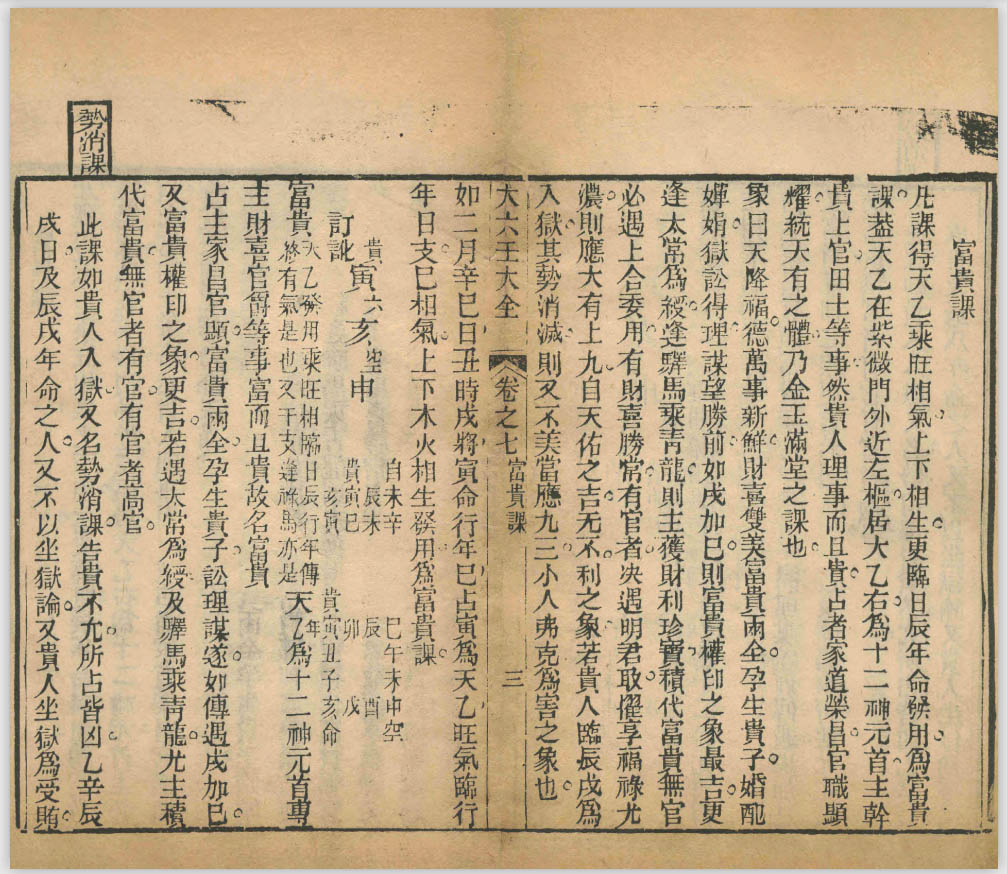 富貴課
凡課得天乙乘旺相氣上下相生更臨日辰年命發用爲富貴
課葢天乙在紫微門外近左樞居大乙右爲十二神元首主幹
貴上官田土等事然貴人理事而且貴占者家道榮昌官職顯
耀統天有之體乃金玉滿堂之課也
象曰天降福德萬事新鮮財喜雙美富貴兩全孕生貴子婚配
嬋娟獄訟得理謀望勝前如戌加巳則富貴權印之象最吉更
逢太常爲綬逢驛馬乘青龍則主獲財利珍寶積代富貴無官
必遇上合委用有財喜勝常有官者决遇明君取擢享福祿尤
濃則應大有上九自天佑之吉无不利之象若貴人臨辰戌爲
入獄其勢消滅則又不美當應九三小人弗克爲害之象也
大六壬大全
卷之七 富貴課
三
如二月辛巳日丑時戌將寅命行年巳占寅爲天乙旺氣臨行
年日支巳相氣上下木火相生發用爲富貴課
自未辛 巳午未申空
貴 辰未 辰 酉
寅六亥空申
貴寅巳 卯 戌
亥寅 貴寅丑子亥命
年
訂訛
富貴 天乙發用乘旺相臨日辰行年傳
終有氣是也又干支逢祿馬亦是
天乙爲十二神元首專
主財喜官爵等事富而且貴故名富貴
占主家昌官顯富貴兩全孕生貴子訟理謀遂如傳遇戌加巳
又富貴權印之象更吉若遇太常爲綬及驛馬乘青龍尤主積
代富貴無官者有官有官者高官
勢消課
此課如貴人入獄又名勢消課告貴不允所占皆凶乙辛辰
戌日及辰戌年命之人又不以坐獄論又貴人坐獄爲受賄